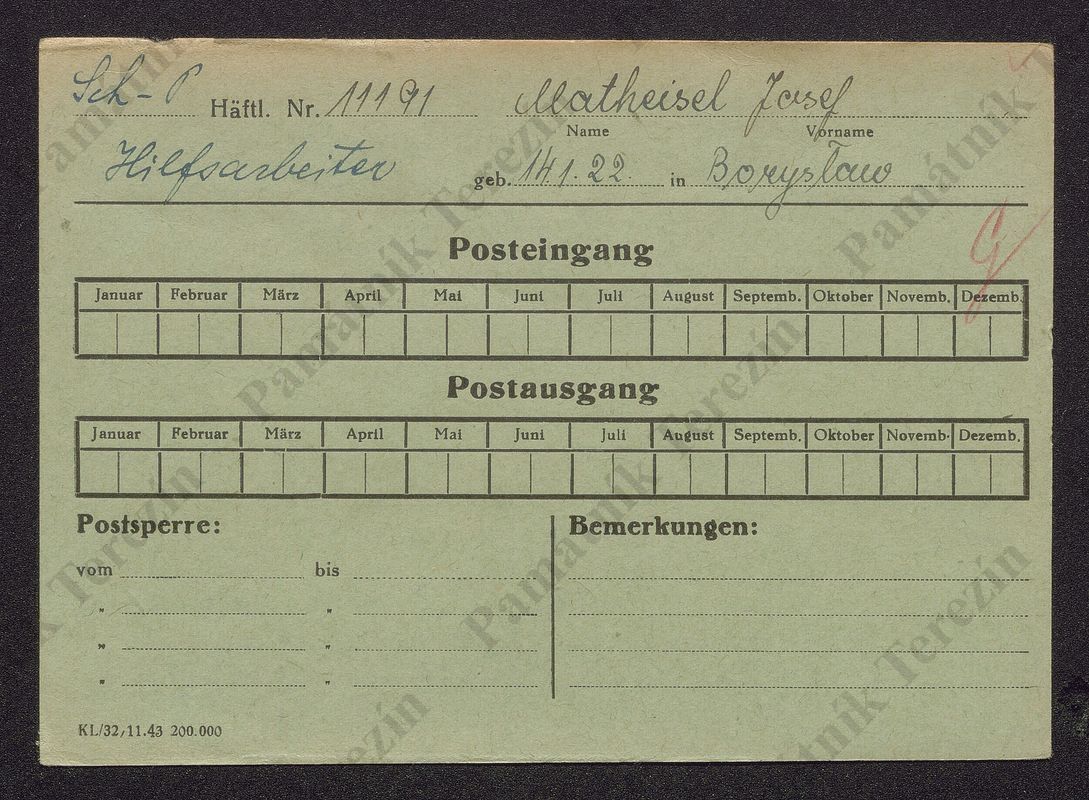 Sch-P Häftl. Nr. 11191 Matheisel Josef
Name Vorname
Hilfsarbeiter geb. 14.1.22. in Borysław
G
Posteingang
Januar Februar März April Mai Juni Juli August Septemb. Oktober Novemb. Dezemb.
Postausgang
Januar Februar März April Mai Juni Juli August Septemb. Oktober Novemb. Dezemb.
Postsperre: Bemerkungen:
vom bis
" "
" "
" "
KL/32, 11.43 200.000
Památník Terezín